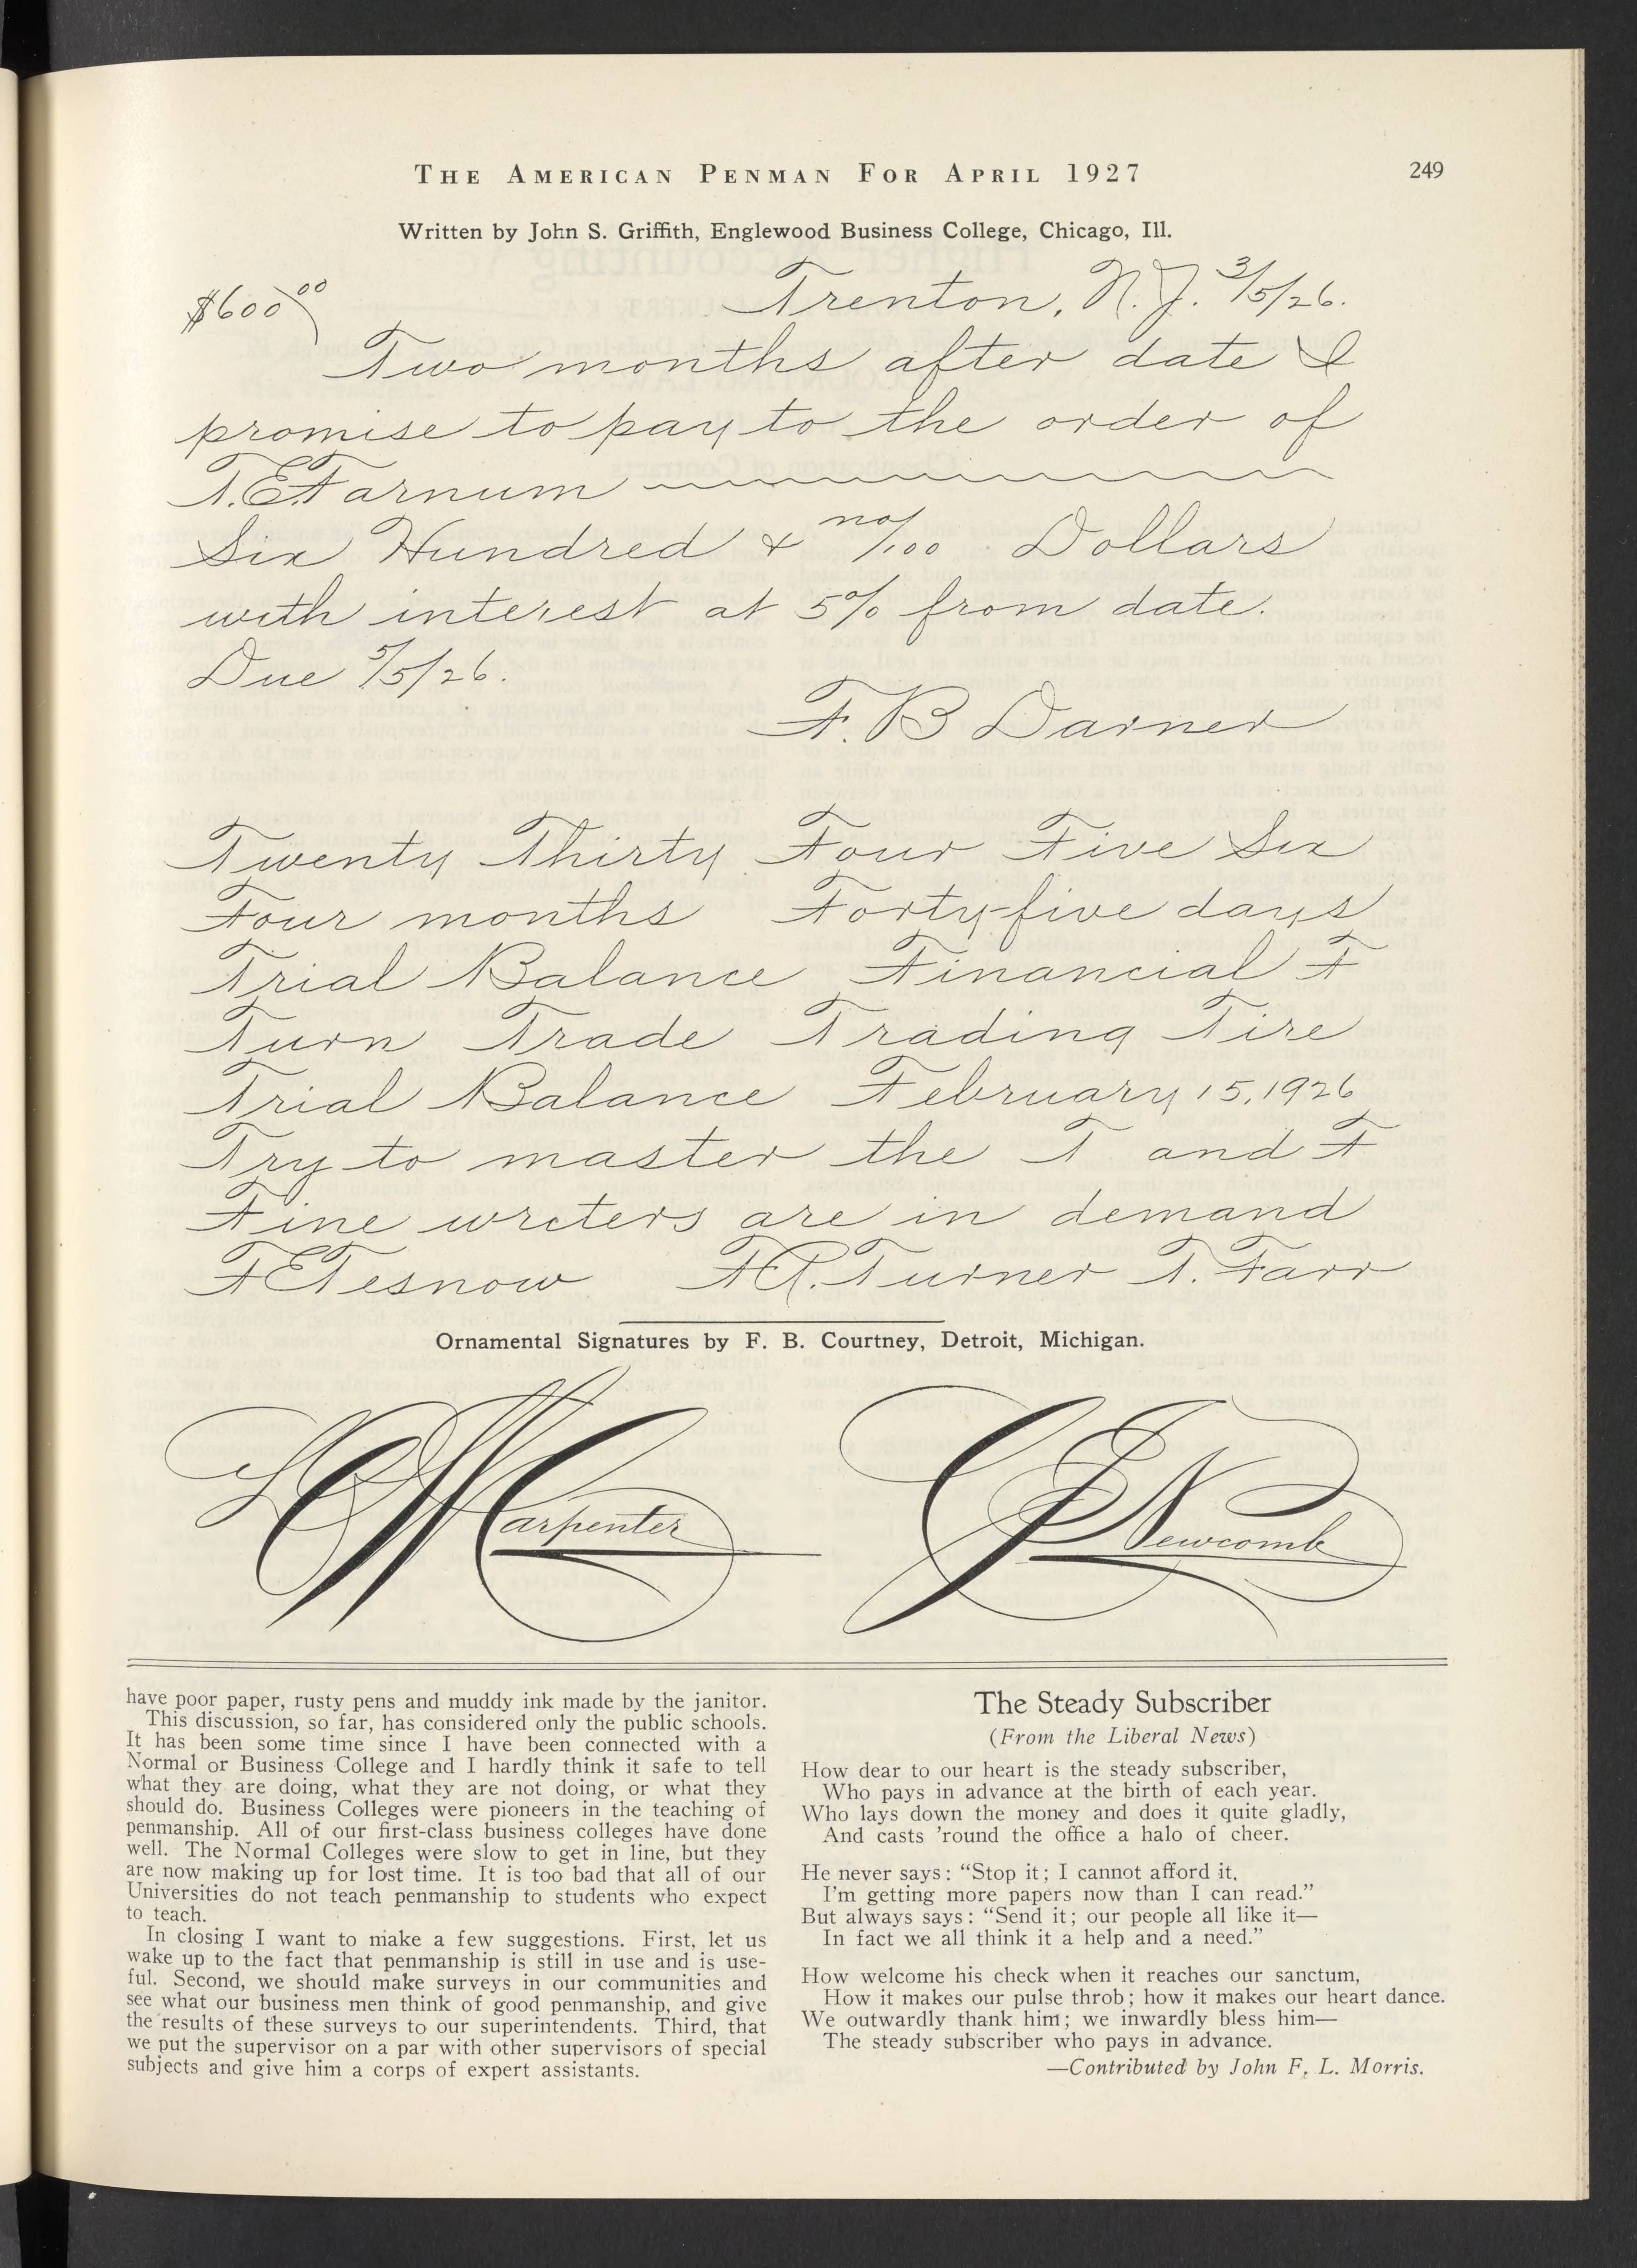 THE AMERICAN PENMAN FOR APRIL 1927
249
Written by John S. Griffith, Englewood Business College, Chicago, Ill.
$600 00
Trenton, N. J. 3/5/26.
Two months after date I
promise to pay to the order of
T. E. Farnum
Six Hundred & no/100 Dollars
with interest at 5% from date.
Due 5/5/26.
F. B Darner
Twenty Thirty Four Five Six
Four months Forty-five days
Trial Balance Financial F
Turn Trade Trading Tire
Trial Balance February 15, 1926
Try to master the T and F
Fine writers are in demand
F E Tesnow F R. Turner T. Farr
Ornamental Signatures by F. B. Courtney, Detroit, Michigan.
Carpenter
Newcomb
have poor paper, rusty pens and muddy ink made by the janitor.
This discussion, so far, has considered only the public schools.
It has been some time since I have been connected with a
Normal or Business College and I hardly think it safe to tell
what they are doing, what they are not doing, or what they
should do. Business Colleges were pioneers in the teaching of
penmanship. All of our first-class business colleges have done
well. The Normal Colleges were slow to get in line, but they
are now making up for lost time. It is too bad that all of our
Universities do not teach penmanship to students who expect
to teach.
In closing I want to make a few suggestions. First, let us
wake up to the fact that penmanship is still in use and is use-
ful. Second, we should make surveys in our communities and
see what our business men think of good penmanship, and give
the results of these surveys to our superintendents. Third, that
we put the supervisor on a par with other supervisors of special
subjects and give him a corps of expert assistants.
The Steady Subscriber
(From the Liberal News)
How dear to our heart is the steady subscriber,
Who pays in advance at the birth of each year.
Who lays down the money and does it quite gladly,
And casts 'round the office a halo of cheer.
He never says: “Stop it; I cannot afford it,
I'm getting more papers now than I can read.”
But always says: “Send it; our people all like it—
In fact we all think it a help and a need.”
How welcome his check when it reaches our sanctum,
How it makes our pulse throb; how it makes our heart dance.
We outwardly thank him; we inwardly bless him—
The steady subscriber who pays in advance.
—Contributed by John F. L. Morris.